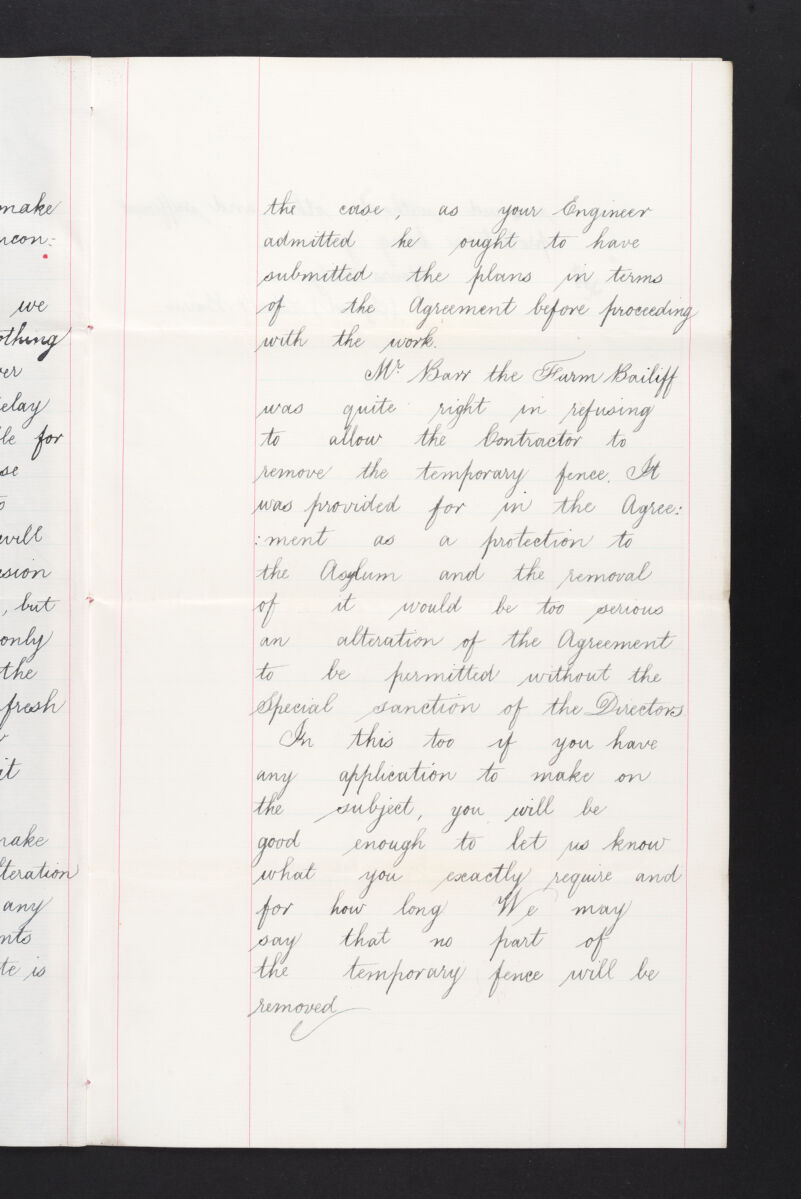 make
ncon:
we
othing
ver
delay
le for
se
o
will
sion
, but
only
the
fresh
it
make
lteration
any
nts
te is
the case, as your Engineer
admitted he ought to have
submitted the plans in terms
of the Agreement before proceeding
with the work.
Mr Barr the Farm Bailiff
was quite right in refusing
to allow the Contractor to
remove the temporary fence. It
was provided for in the Agree:
:ment as a protection to
the Asylum and the removal
of it would be too serious
an alteration of the Agreement
to be permitted without the
Special sanction of the Directors
In this too if you have
any application to make on
the subject, you will be
good enough to let us know
what you exactly require and
for how long We may
say that no part of
the temporary fence will be
removed